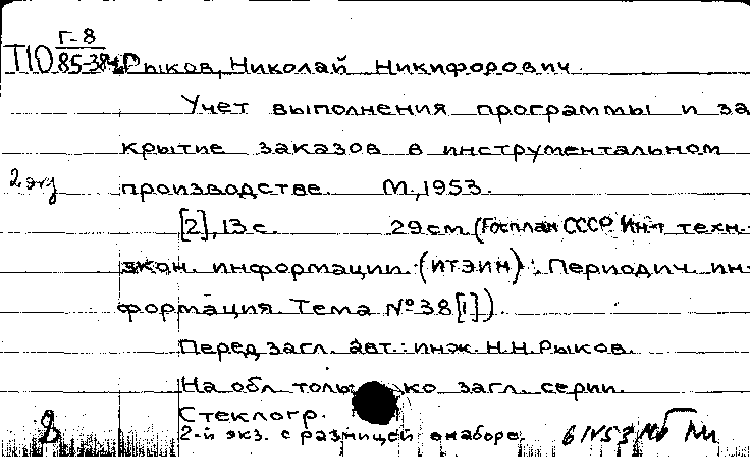 Г-8
Т10 85-38
Рыков, Николай Никифорович
Учет выполнения программы и за
крытие заказов в инструментальном
2 экз
производстве. М., 1953.
[2], 13 с. 29 см (Госплан СССР. Ин-т техн.-
экон. информации (ИТЭИН). Периодич. ин-
формация. Тема № 38 [1])
Перед загл. авт.: инж. Н.Н. Рыков.
На обл. только загл. серии.
Стеклогр.
2-й экз. с разницей в наборе.
6/IV53